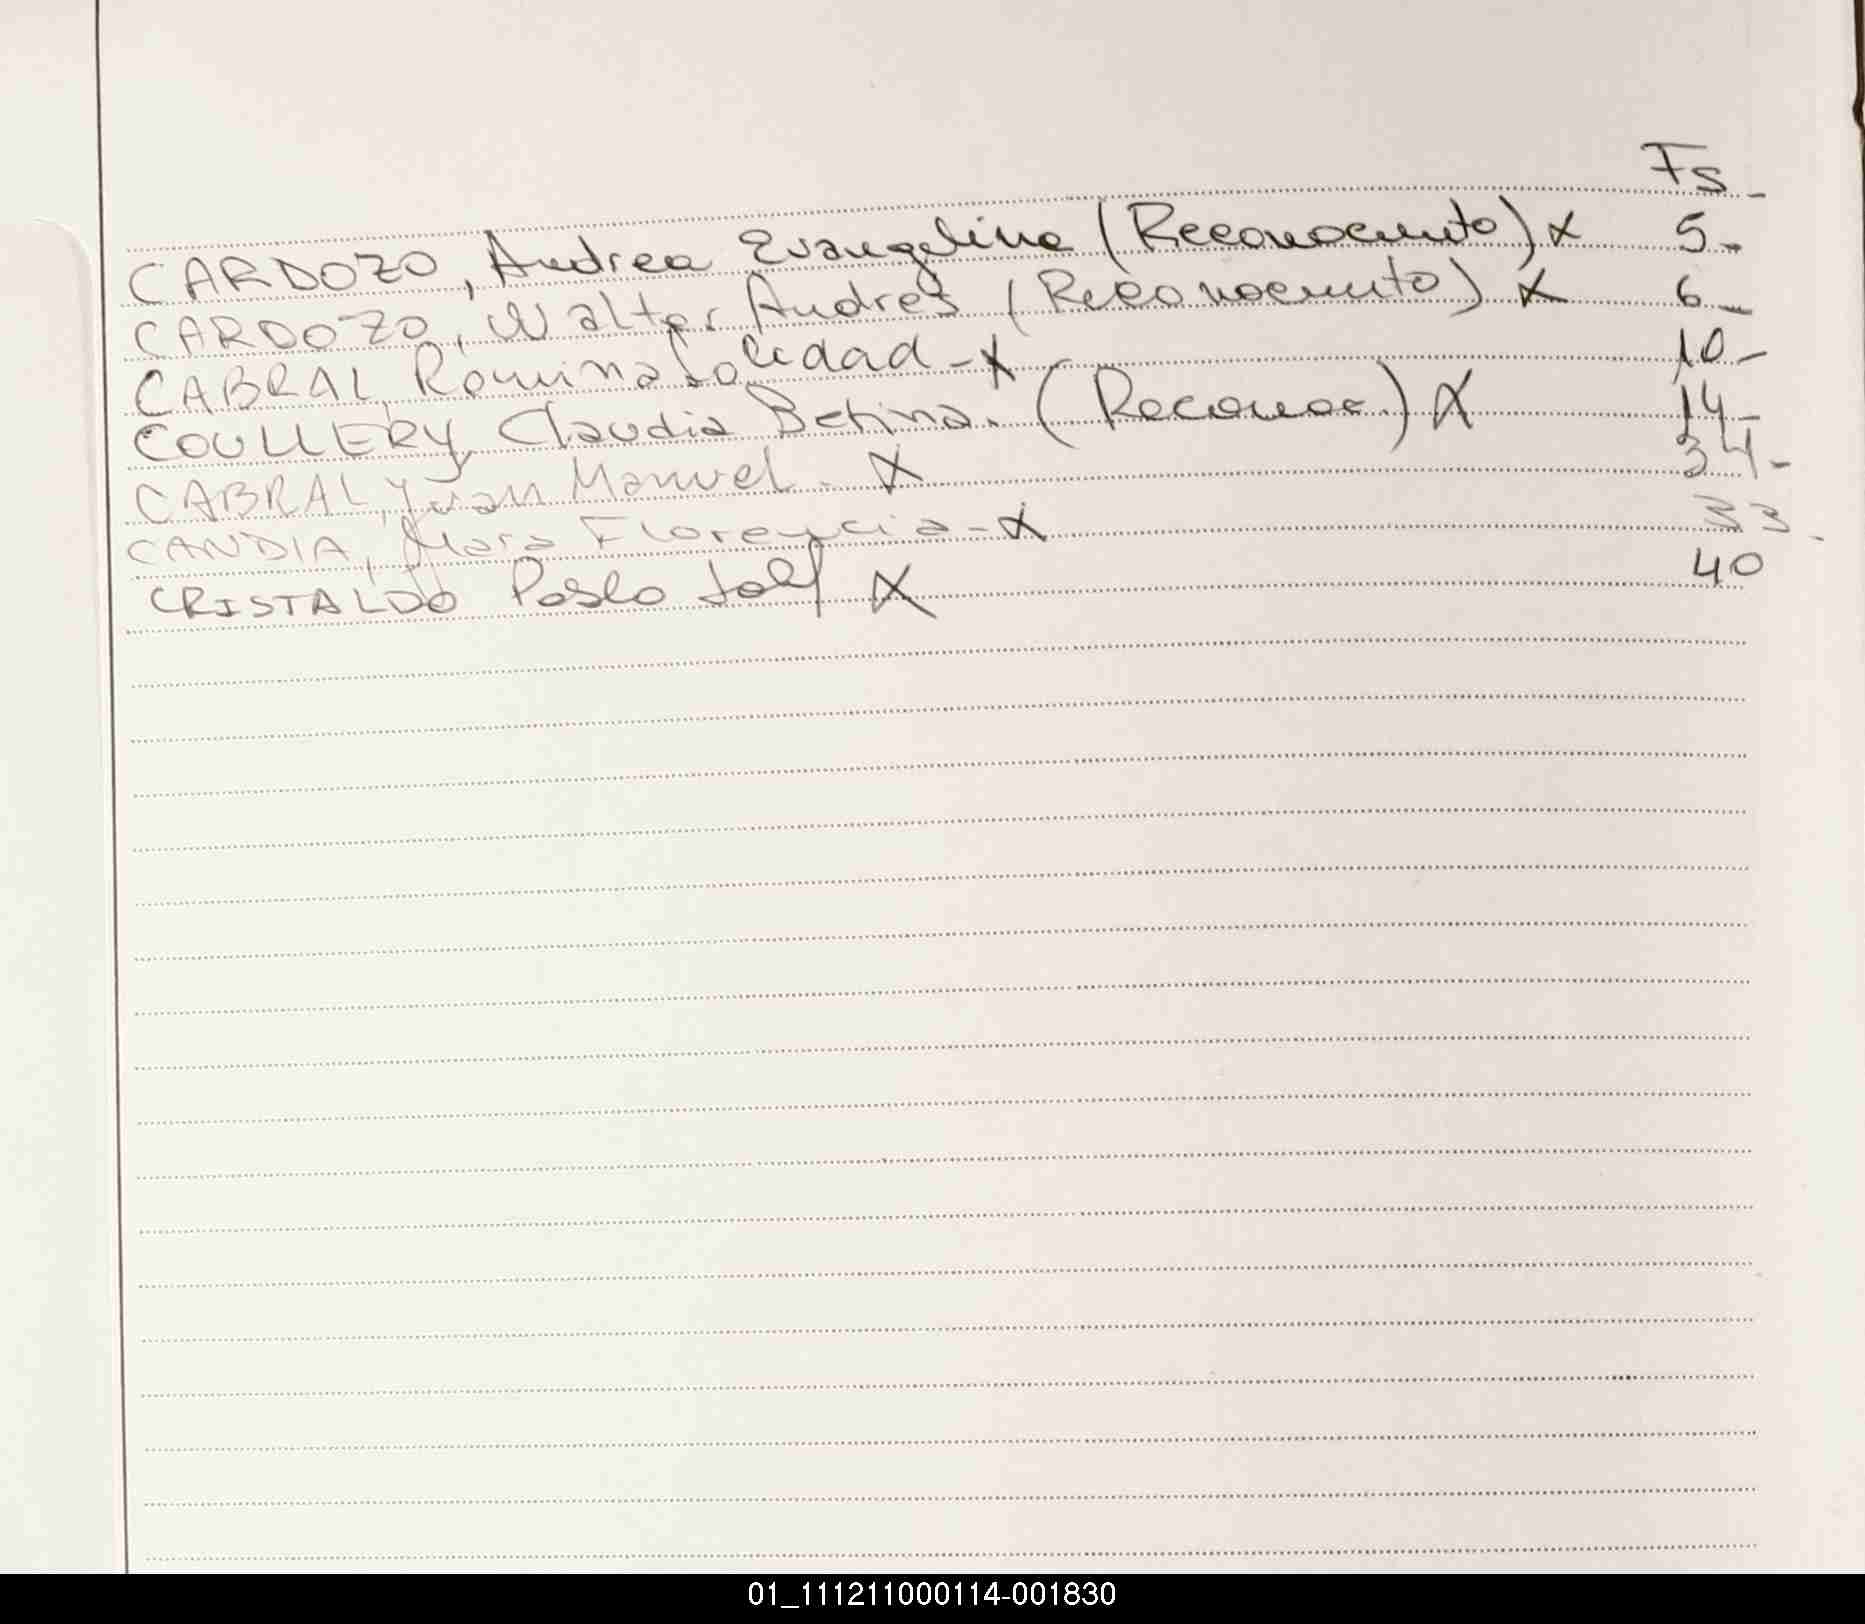 Fs -
CARDOZO, Andrea Evangelina (Reconocimiento) x 5 -
CARDOZO, Walter Andres (Reconocimiento) x 6 -
CABRAL, Romina Soledad - x 10 -
COULLERY, Claudia Betina. (Reconoc.) X 14 -
CABRAL, Juan Manuel - X 34 -
CANDIA, Mara Florencia - X 33 -
CRISTALDO Pablo X 40
01_111211000114-001830